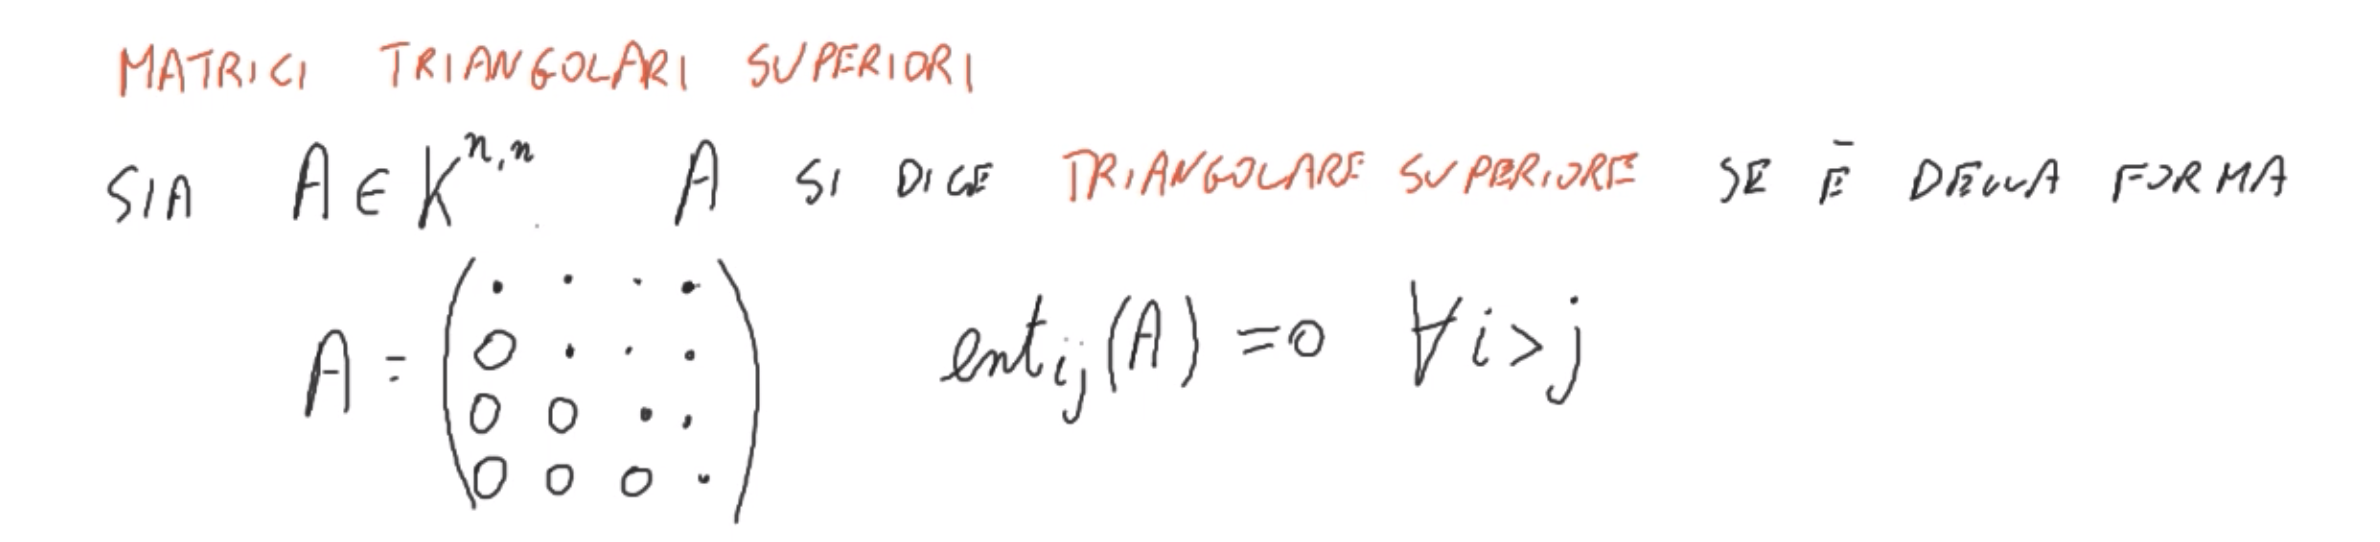 MATRICI TRIANGOLARI SUPERIORI
SIA A ∈ K^{n,n}. A SI DICE TRIANGOLARE SUPERIORE SE È DELLA FORMA
A = ( . . . . ; 0 . . . ; 0 0 . . ; 0 0 0 . ) ent_{ij}(A) = 0 ∀ i > j